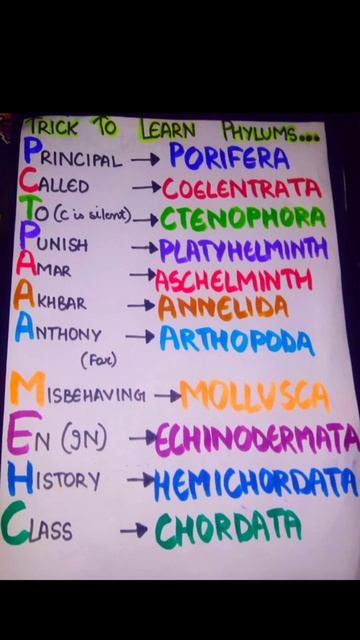 TRICK TO LEARN PHYLUMS...
PRINCIPAL → PORIFERA
CALLED → COELENTRATA
TO (C is silent) → CTENOPHORA
PUNISH → PLATYHELMINTH
AMAR → ASCHELMINTH
AKHBAR → ANNELIDA
ANTHONY → ARTHOPODA
(For)
MISBEHAVING → MOLLUSCA
EN (IN) → ECHINODERMATA
HISTORY → HEMICHORDATA
CLASS → CHORDATA